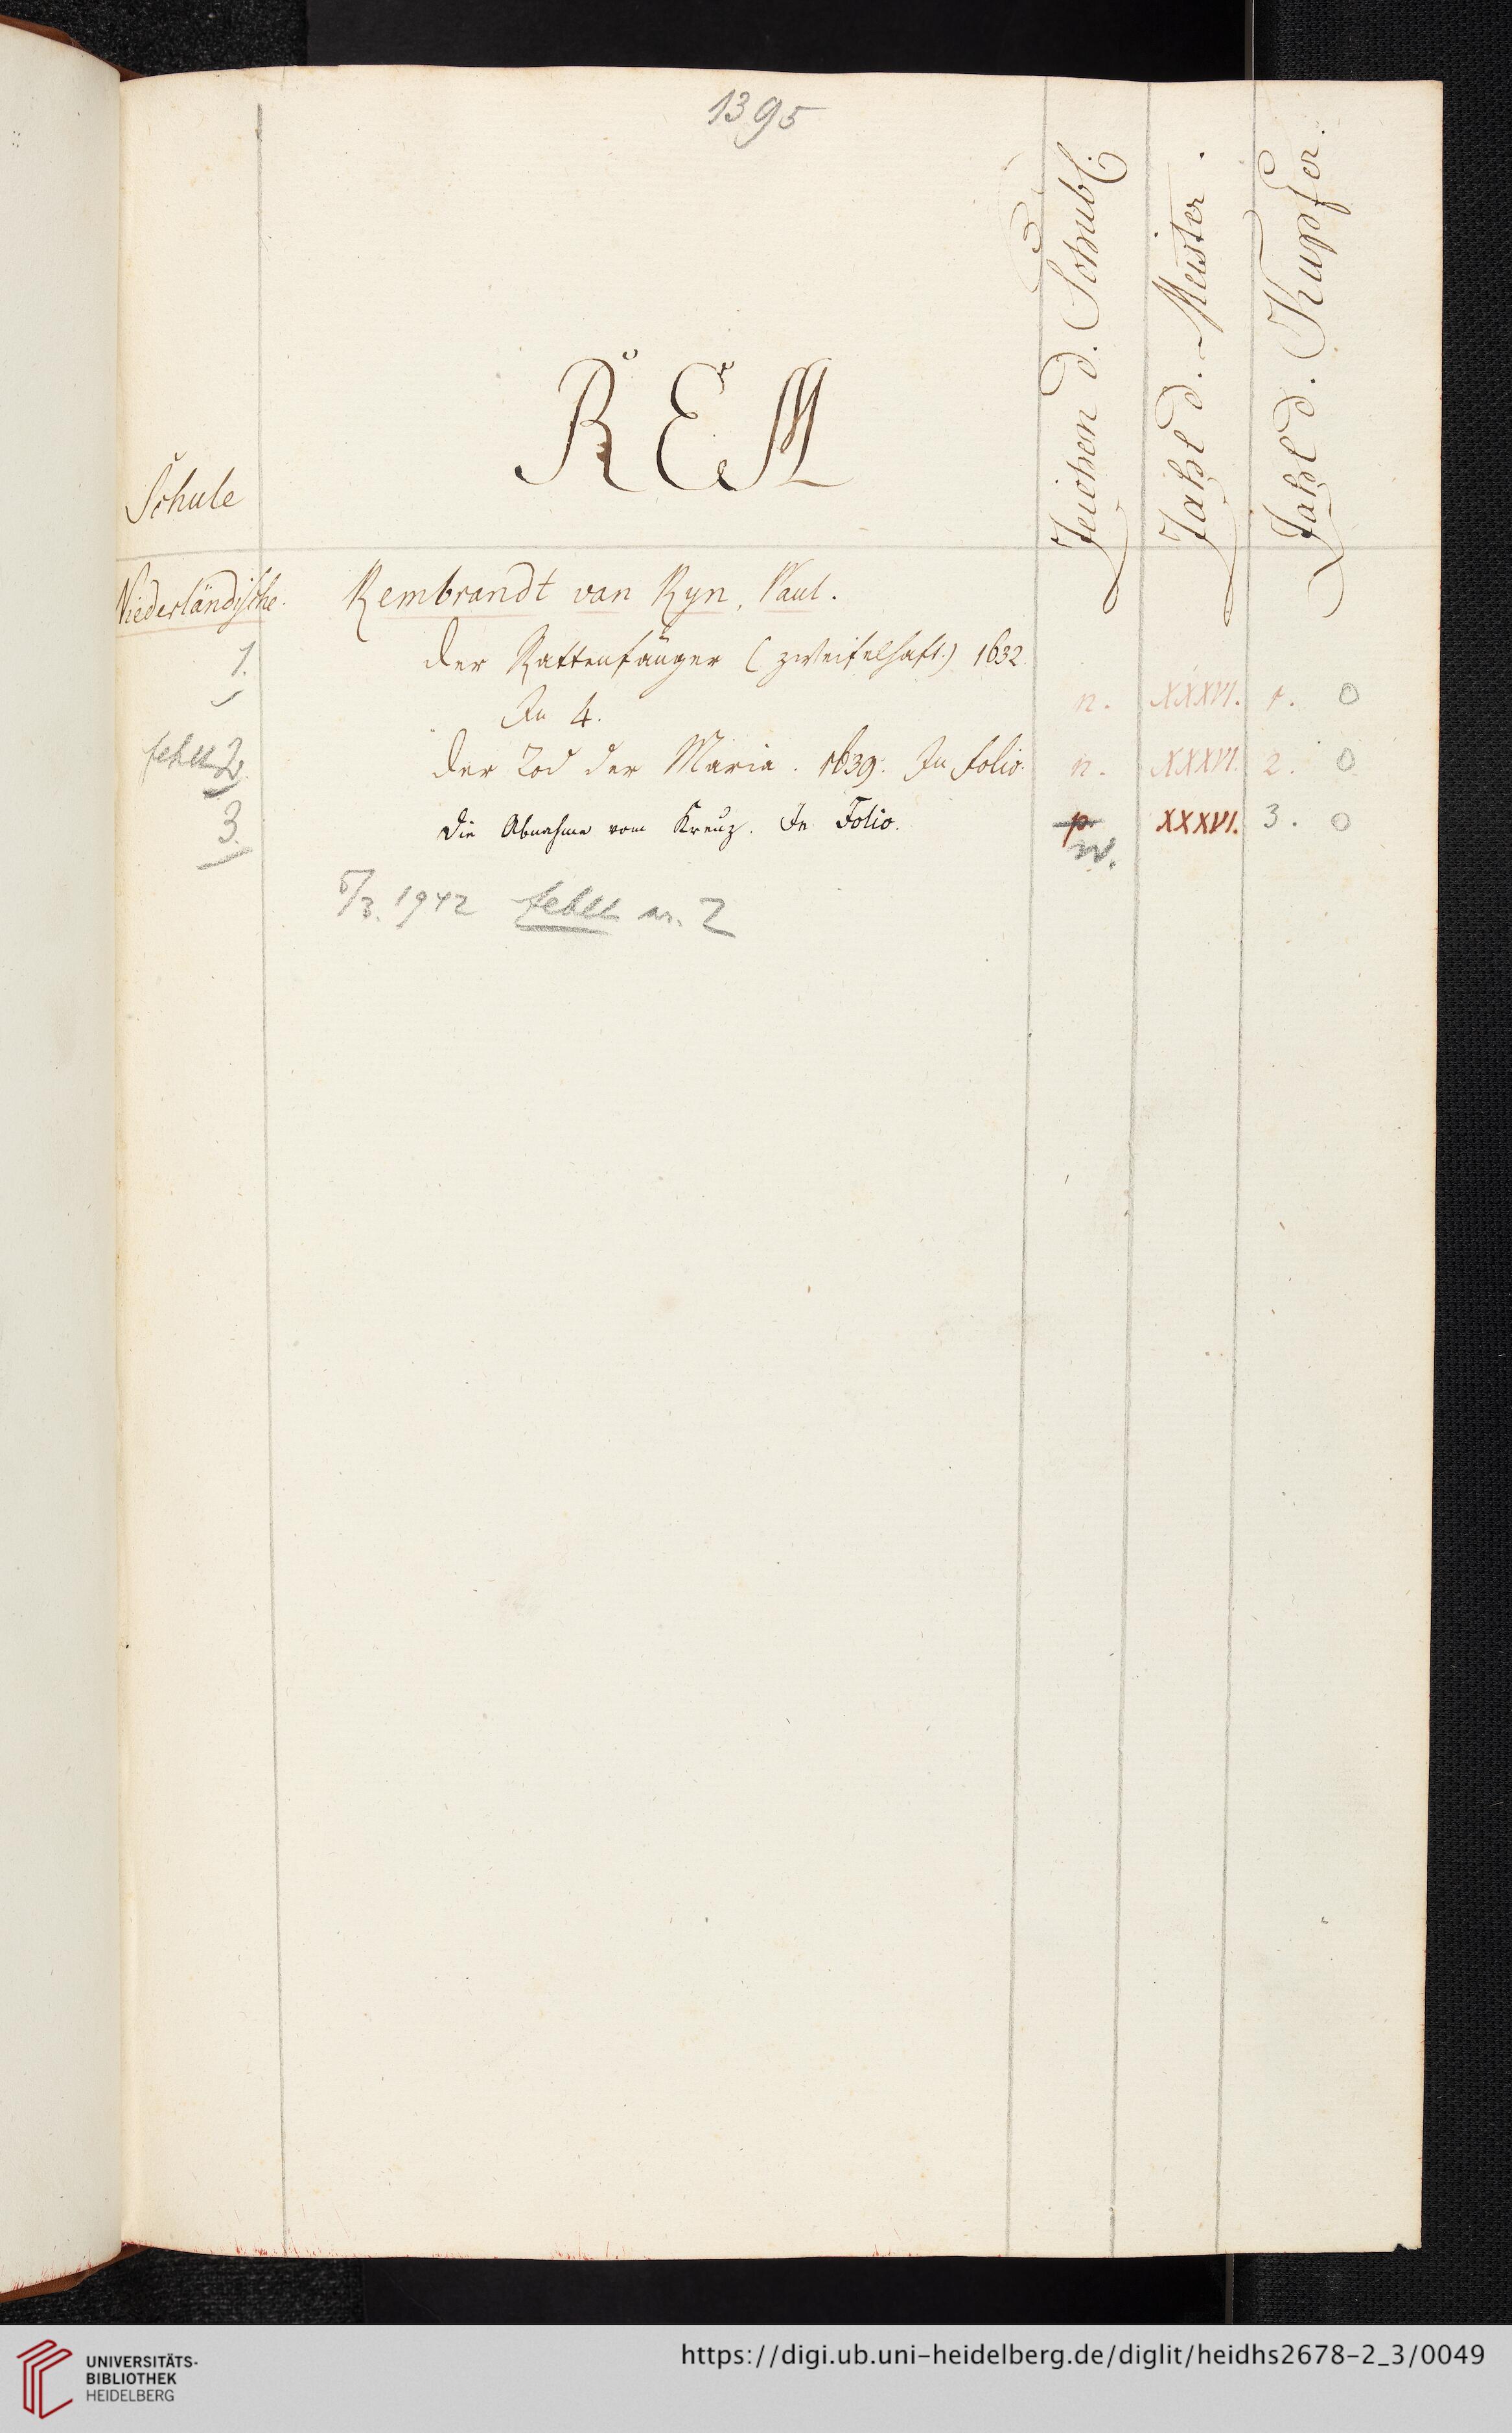 1395
Zeichen d. Schubl.
Zahl d. Meister.
Zahl d. Kupfer.
REM
Schule
Niederländische. Rembrandt van Ryn, Paul.
1. Der Rattenfänger (zweifelhaft.) 1632
In 4. n. XXXVI. 1. 0
fehlt 2. Der Tod der Maria. 1639. In Folio. n. XXXVI. 2. 0
3. Die Abnahme vom Kreuz. In Folio. p. XXXVI. 3. 0
n.
5/3. 1942 fehlt nr. 2
UNIVERSITÄTS-
BIBLIOTHEK
HEIDELBERG
https://digi.ub.uni-heidelberg.de/diglit/heidhs2678-2_3/0049